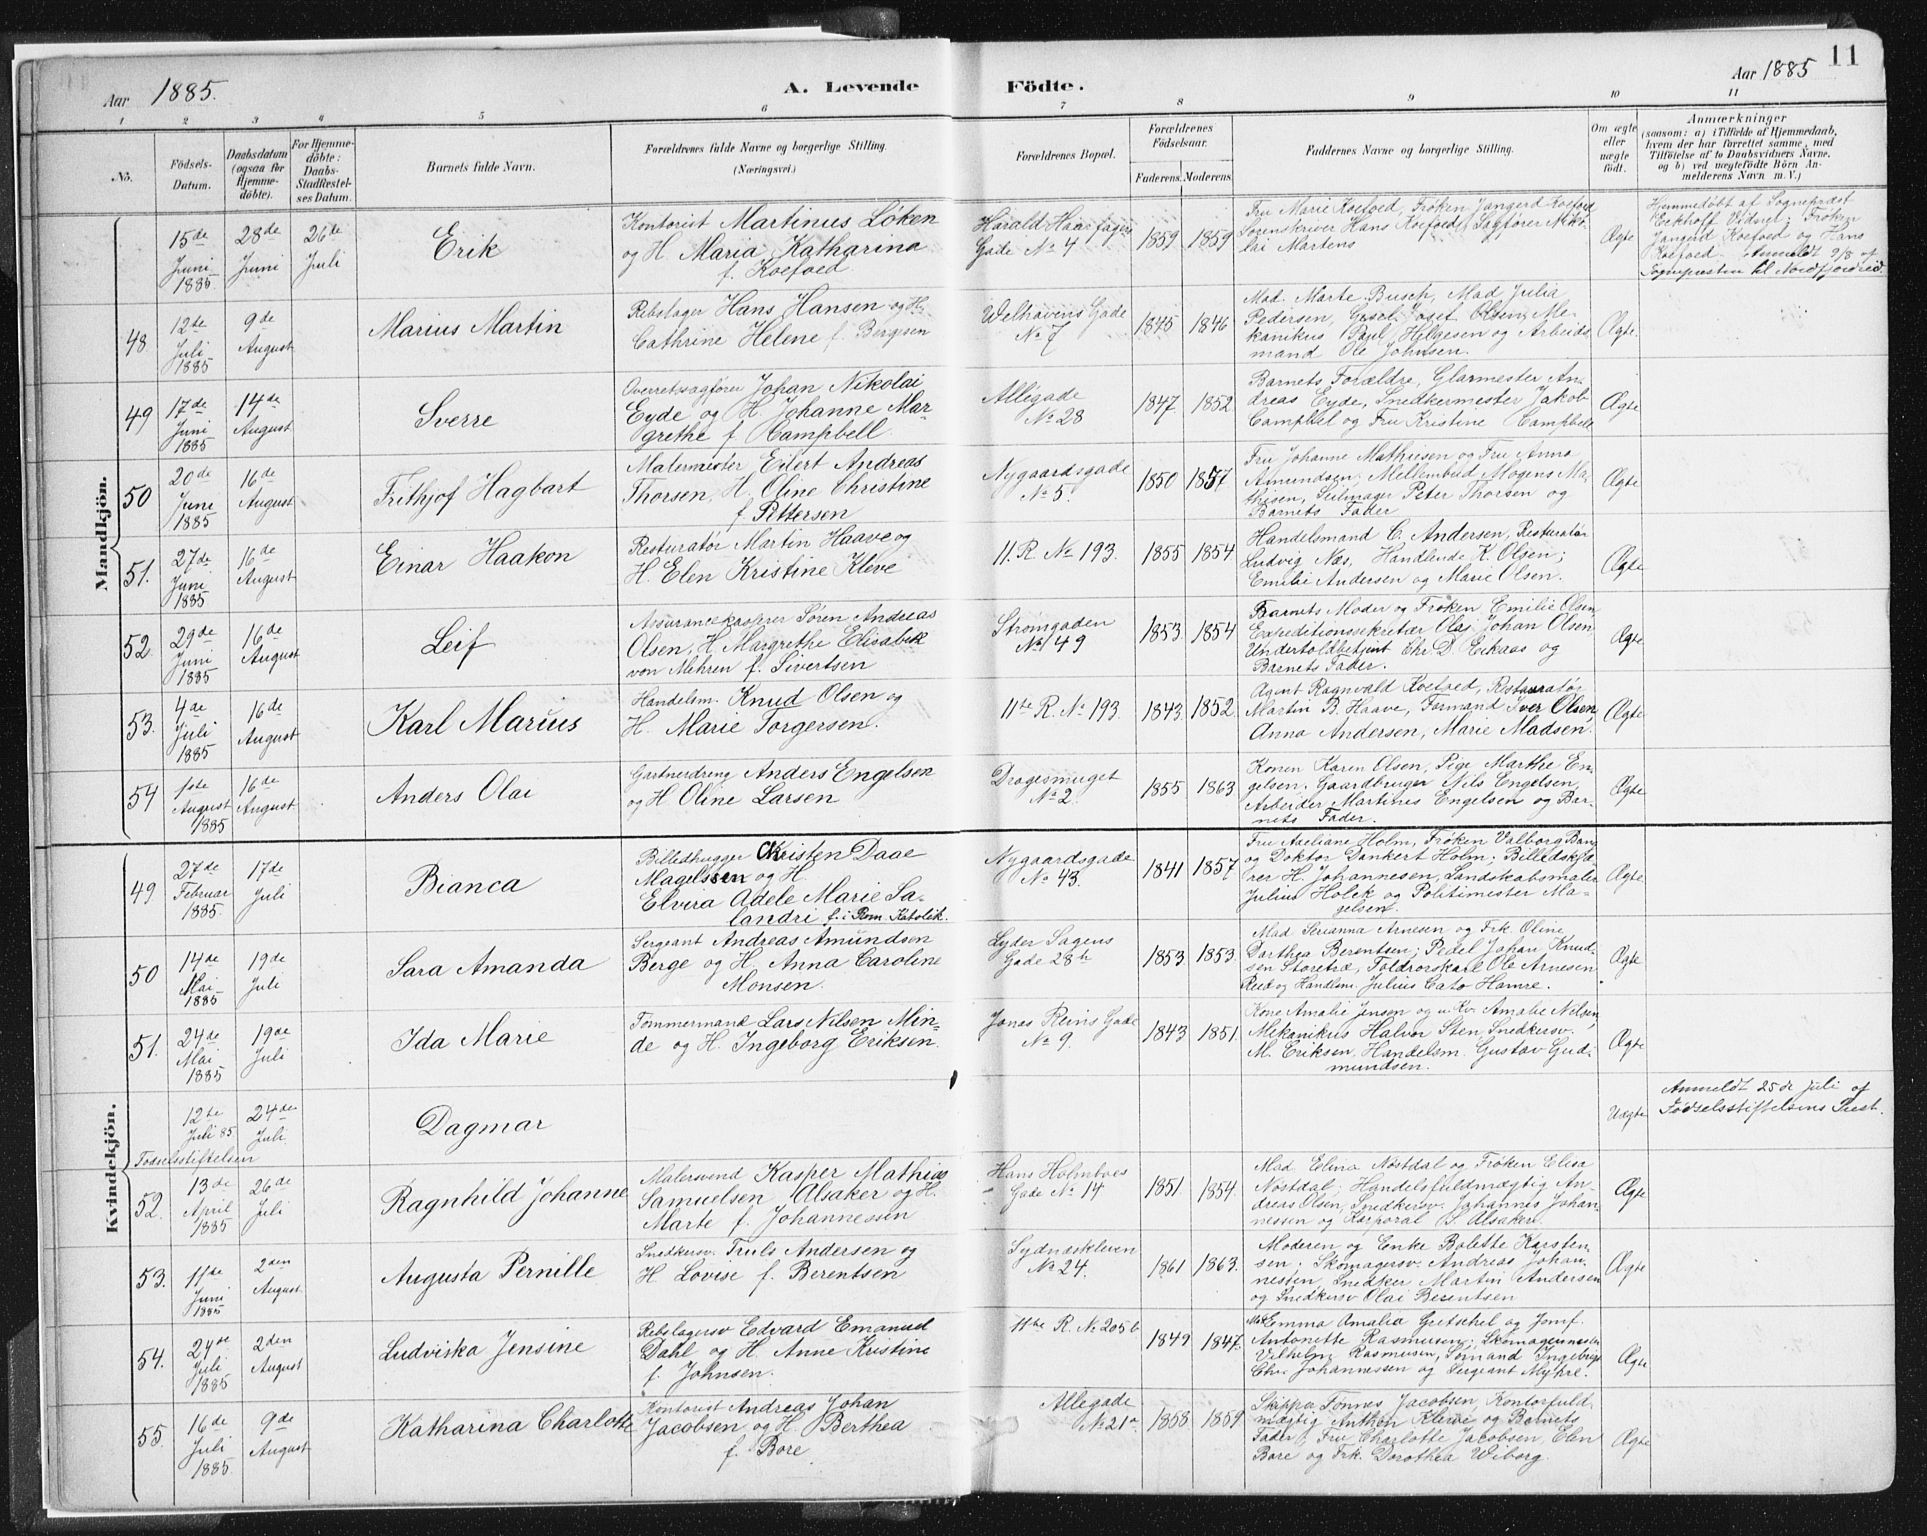 Aar 1885. A. Levende Födte. Aar 1885 11
1 2 3 4 5 6 7 8 9 10 11
No. Födsels-Datum. Daabsdatum (ogsaa for Hjemme-döbte). For Hjemme-döbte: Daabs-Stadfæstel-ses Datum. Barnets fulde Navn. Forældrenes fulde Navne og borgerlige Stilling. (Næringsvei.) Forældrenes Bopæl. Forældrenes Födselsaar. Faderens. Moderens. Faddernes Navne og borgerlige Stilling. Om ægte eller uægte födt. Anmærkninger (saasom: a) i Tilfælde af Hjemmedaab, hvem der har forrettet samme, med Tilföielse af to Daabsvidners Navne, og b) ved uægtefödte Börn Anmelderens Navn m. V.)
Mandkjön.
15de Juni 1885 28de Juni 26de Juli Erik
Kontorist Martinus Löken
og H. Maria Katharina
f. Koefoed
Harald Haarfagers
Gade No 4 1859 1859
Fru Marie Koefoed, Frøken Jangerd Koefoed
Sorenskriver Hans Koefoed, Sagfører Niko-
lai Martens
Ægte
Hjemmedøbt af Sognepræst
Eckhoff. Vidner: Frøken
Jangerd Koefoed og Hans
Koefoed. Anmeldt 9/8 af
Sognepræsten til Nordfjordeid.
48 12te Juli 1885 9de August Marius Martin
Rebslager Hans Hansen og H.
Cathrine Helene f. Bergsen
Welhavens Gade
No 7 1845 1846
Mad. Marte Busch, Mad Julia
Pedersen, Olsen, Me-
kanikus Helgesen og Arbeids-
mand Ole Johnsen.
Ægte
49 17de Juni 1885 14de August Sverre
Overretssagfører Johan Nikolai
Eyde og H. Johanne Mar-
grethe f. Campbell
Allégade
No 28 1847 1852
Barnets Forældre, Glarmester An-
dreas Eyde, Snedkermester Jakob
Campbel og Fru Kristine Campbell
Ægte
50 20de Juni 1885 16de August Frithjof Hagbart
Malermester Eilert Andreas
Thorsen, H. Oline Christine
f. Pettersen
Nygaardsgade
No 5. 1850 1857
Fru Johanne Mathiesen og Fru Anna
Amundsen, Mellembud Mogens Ma-
thisen, Seilmager Peter Thorsen og
Barnets Fader
Ægte
51. 27de Juni 1885 16de August Einar Haakon
Resturatør Martin Haave og
H. Elen Kristine Kleve
11. R. No 193. 1855 1854
Handelsmand C. Andersen, Resturatør
Ludvig Næs, Handlende K. Olsen;
Emilie Andersen og Marie Olsen.
Ægte
52 29de Juni 1885 16de August Leif
Assurancekasserer Søren Andreas
Olsen, H. Margrethe Elisabeth
von Mehren f. Sivertsen
Strømgaden
No 49 1853 1854
Barnets Moder og Frøken Emilie Olsen
Expeditionssekretær Olaj Johan Olsen
Undertoldbetjent Chr. D. Heikaas og
Barnets Fader.
Ægte
53. 4de Juli 1885 16de August Karl Marius
Handelsm. Knud Olsen og
H. Marie Torgersen.
11te R. No 193. 1843 1852
Agent Ragnvald Koefoed, Restauratør
Martin B. Haave, Formand Iver Olsen,
Anna Andersen, Marie Madsen.
Ægte
54 1ste August 1885 16de August Anders Olai
Gartnerdreng Anders Engelsen
og H. Oline Larsen
Dragesmuget
No 2. 1855 1863
Konen Karen Olsen, Pige Marthe En-
gelsen; Gaardbruger Nils Engelsen,
Arbeider Martines Engelsen og Bar-
nets Fader.
Ægte
Kvindekjön.
49 27de Februar 1885. 17de Juli Bianca
Billedhugger Christen Daae
Magelssen og H.
Elvira Adele Marie Sa-
landri f. i Rom. Katolik.
Nygaardsgade
No 43. 1841 1857
Fru Axeliane Holm, Frøken Valborg
og Doktor Dankert Holm; Billedskjæ-
rer H. Johannesen, Landskabsmaler
Julius Holck og Politimester Ma-
gelsen.
Ægte
50 14de Mai 1885 19de Juli Sara Amanda
Sergeant Andreas Amundsen
Berge og H. Anna Caroline
Monsen.
Lyder Sagens
Gade 28b 1853 1853
Mad Serianna Arnesen og Frk. Oline
Dorthea Berentsen; Pedel Johan Knud-
sen Storetræ, Toldrorskarl Ole Arnesen
og Handlsm. Julius Cato Hamre.
Ægte
51. 24de Mai 1885 19de Juli Ida Marie
Tømmermand Lars Nilsen Min-
de og H. Ingeborg Eriksen.
Jonas Reins Gade
No 9. 1843 1851.
Kone Amalie Jensen og u. Kv. Amalie Nilsen,
Mekanikus Halvor Sten, Snedkersv.
M. Eriksen, Handelsm. Gustav Gud-
mundsen.
Ægte
12te Juli 85 24de Juli Dagmar
Uægte
Anmeldt 25de Juli af
Fødselsstiftelsens Præst.
Fødselsstiftelsen
52. 13de April 1885 26de Juli Ragnhild Johanne
Malersvend Kasper Mathias
Samuelsen Alsaker og H.
Marte f. Johannessen
Hans Holmboes
Gade No 14 1851. 1854.
Mad Elina Nøstdal og Frøken Elisa
Nøstdal; Handelsfuldmægtig An-
dreas Olsen, Snedkersv. Johannes Johan-
nessen og Korporal S. Alsaker.
Ægte
53. 11te Juni 1885 2den August Augusta Pernille
Snedkersv. Truls Andersen og
H. Lovise f. Berentsen
Sydnæskleven
No 24. 1861 1863.
Moderen og Enke Bolette Karsten-
sen; Skomagersv. Andreas Johan-
nesen, Snedker Martin Andersen
og Snedkersv Olai Berentsen
Ægte
54. 24de Juli 1885 2den August Ludviska Jensine
Rebslagersv Edvard Emanuel
Dahl og H. Anne Kristine
f. Johnsen.
11te R. No 205b 1849 1847.
Emma Amalia Gretschel og Jomf.
Antonette Rasmusen; Skomagermester
Vilhelm Rasmusen, Sømand Ingebrigt
Chr. Johannessen og Sergeant Myhre.
Ægte
55. 16de Juli 1885. 9de August Katharina Charlotte
Kontorist Andreas Johan
Jacobsen og H. Berthea
f. Bore
Allegade
No 21a 1858 1859
Skipper Tønnes Jacobsen, Kontorfuld-
mægtig Anthon Kleive og Barnets
Fader, Fru Charlotte Jacobsen, Elen
Bore og Frk. Dorothea Wiborg.
Ægte